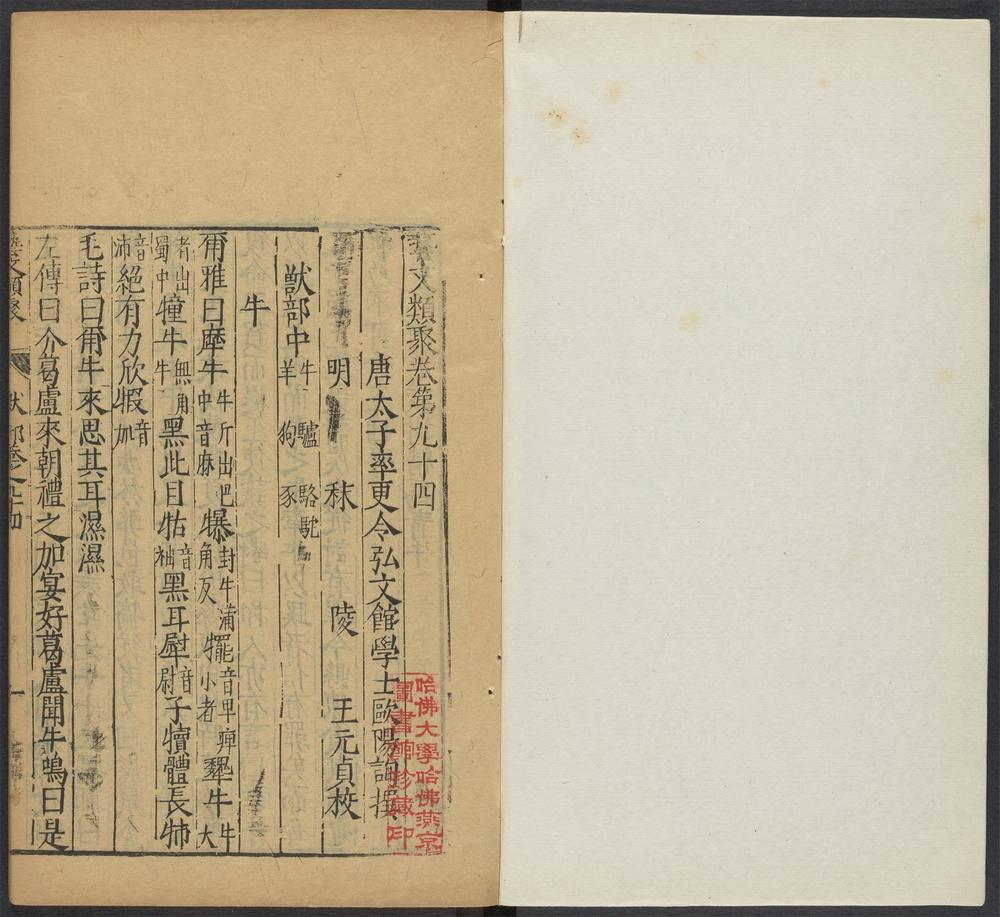 藝文類聚卷第九十四
唐太子率更令弘文館學士歐陽詢撰
明 秣 陵 王元貞校
獸部中 牛 驢 駱駝 羊 狗 豕
牛
爾雅曰犘牛 牛斤出巴中音麻 犦 封牛蒲角反 犤 音早痺小者 犩牛 牛大
者出蜀中 犝牛 無角牛 黑此目牰 音袖 黑耳犚 音尉 子犢體長牬
音沛 絕有力欣犌 音加
毛詩曰爾牛來思其耳濕濕
左傳曰介葛盧來朝禮之加宴好葛盧聞牛鳴曰是
藝文類聚 獸部卷之九十四 一
哈佛大學哈佛燕京圖書館珍藏印